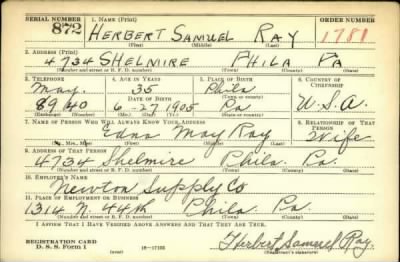 SERIAL NUMBER 1. NAME (Print) ORDER NUMBER
872 HERBERT SAMUEL RAY 1781
(First) (Middle) (Last)
2. ADDRESS (Print)
4734 SHELMIRE PHILA PA
(Number and street or R. F. D. number) (Town) (County) (State)
3. TELEPHONE 4. AGE IN YEARS 5. PLACE OF BIRTH 6. COUNTRY OF CITIZENSHIP
May. 35 Phila
DATE OF BIRTH (Town or county)
8940 6-27-1905 Pa U.S.A.
(Mo.) (Day) (Yr.) (State or country)
7. NAME OF PERSON WHO WILL ALWAYS KNOW YOUR ADDRESS 8. RELATIONSHIP OF THAT PERSON
Edna May Ray Wife
(Mr., Mrs., Miss) (First) (Middle) (Last)
9. ADDRESS OF THAT PERSON
4734 Shelmire Phila. Pa.
(Number and street or R. F. D. number) (Town) (County) (State)
10. EMPLOYER'S NAME
Newton Supply Co
11. PLACE OF EMPLOYMENT OR BUSINESS
1314 N. 44th Phila Pa.
(Number and street or R. F. D. number) (Town) (County) (State)
I AFFIRM THAT I HAVE VERIFIED ABOVE ANSWERS AND THAT THEY ARE TRUE.
REGISTRATION CARD
D. S. S. Form 1 (over) Herbert Samuel Ray.
(Registrant's signature)